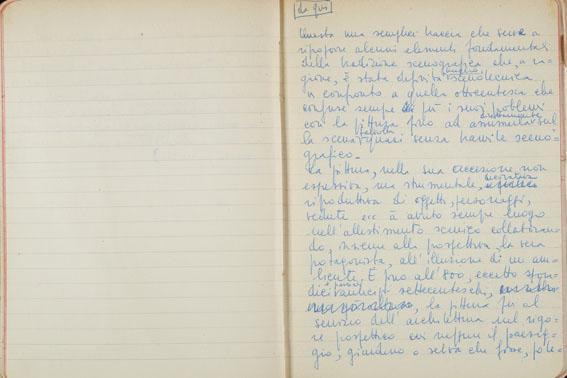 da qui
Questa una semplice traccia che serve a
riproporre alcuni elementi fondamentali
della tradizione scenografica che, a ra-
gione, è stata definita meglio scenotecnica
in confronto a quella ottocentesca che
confuse sempre di più i suoi problemi
con la pittura fino ad assumerla sul
la scena quasi senza tramite sceno-
grafico.
La pittura, nella sua accezione non
espressiva, ma strumentale,
riproduttiva di oggetti, personaggi,
vedute ecc à avuto sempre luogo
nell'allestimento scenico collaboran-
do, insieme alla prospettiva, la vera
protagonista, all'illusione di un am-
biente. E fino all'800, eccetto spora-
dici anticipi settecenteschi,
la pittura fu al
servizio dell'architettura nel rigo-
re prospettico cui neppure il paesag-
gio, giardino o selva che fosse, pote-